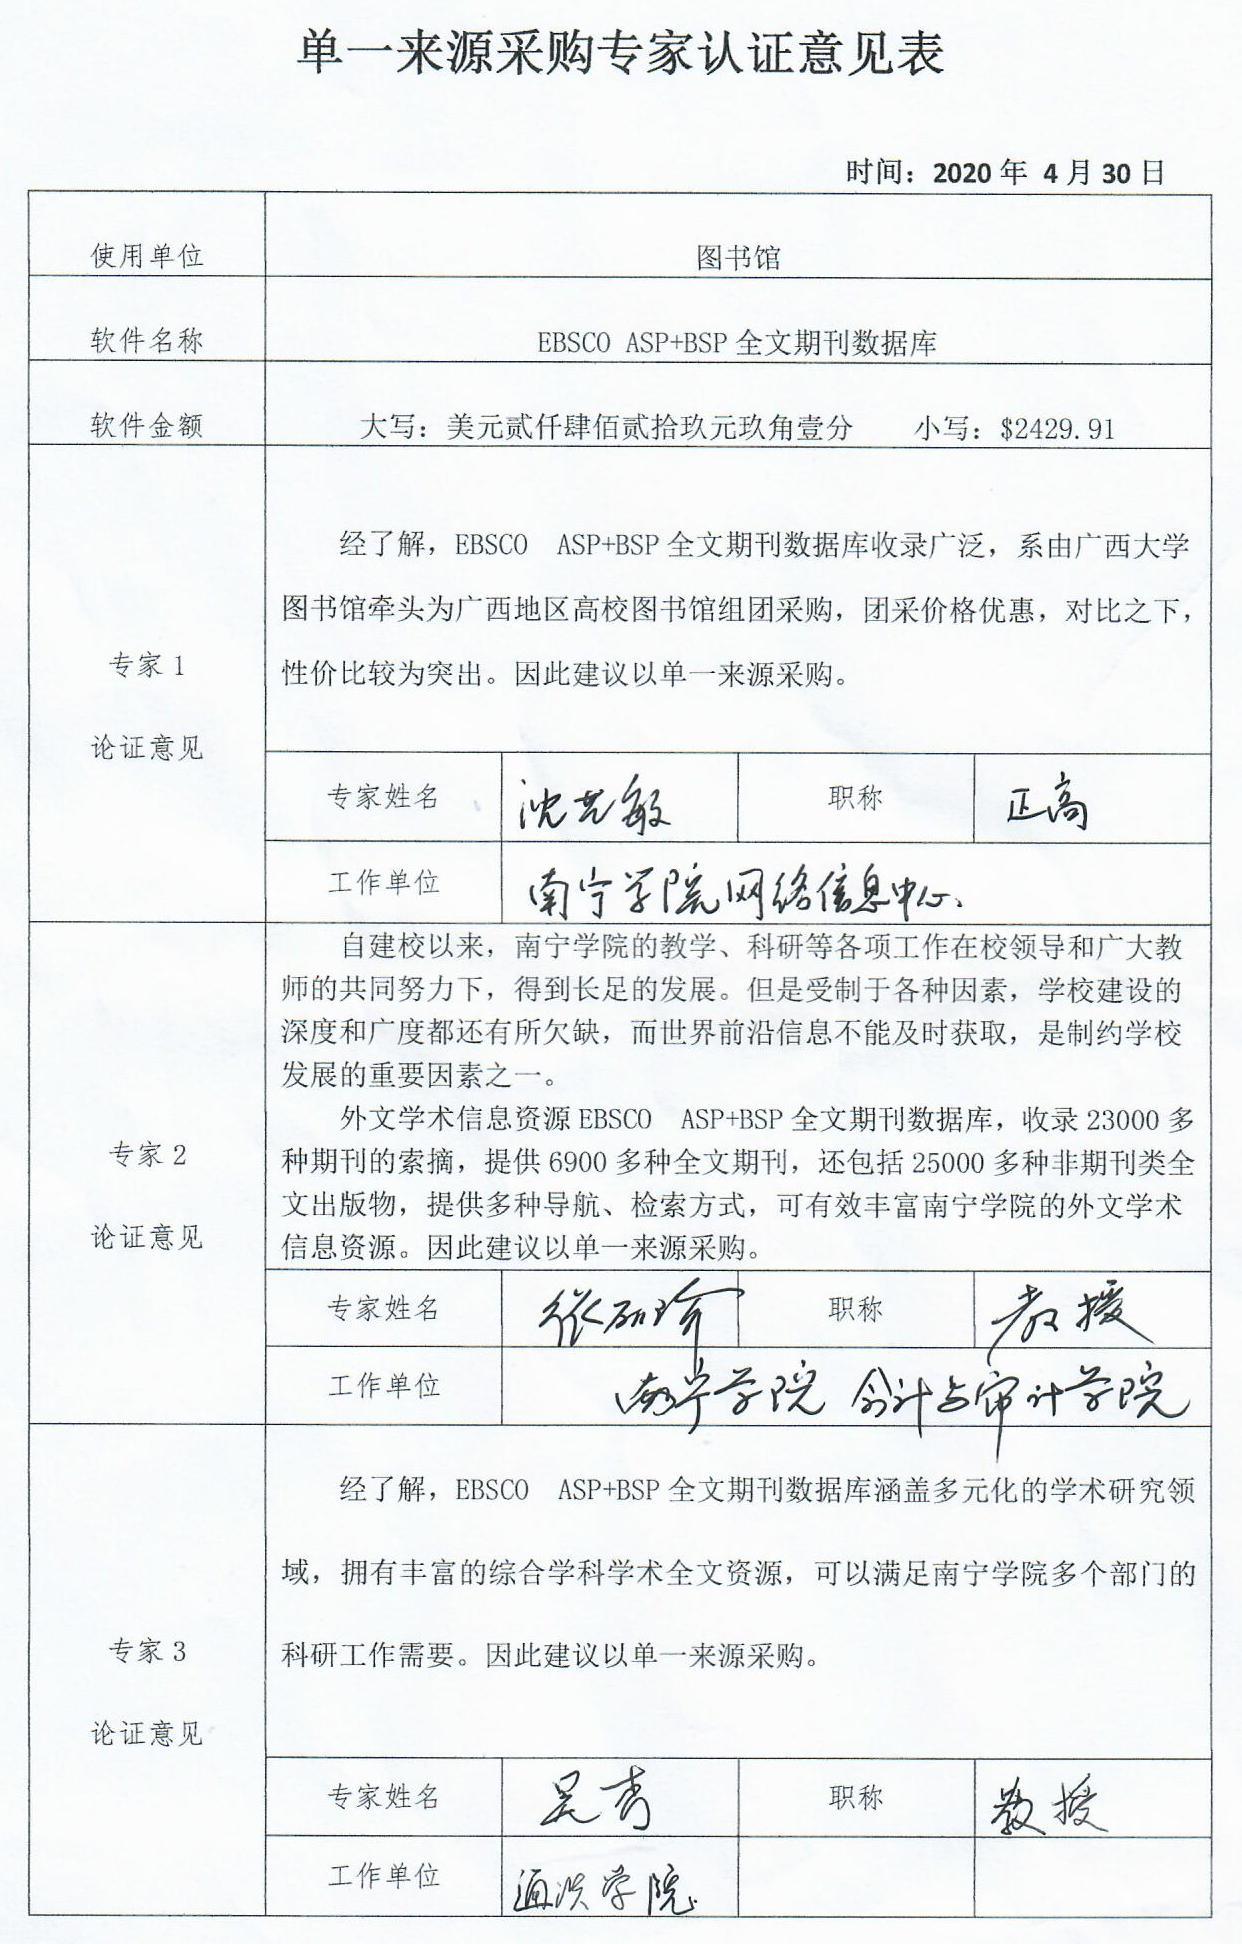 单一来源采购专家认证意见表
时间：2020 年 4 月 30 日
使用单位
图书馆
软件名称
EBSCO ASP+BSP 全文期刊数据库
软件金额
大写：美元贰仟肆佰贰拾玖元玖角壹分 小写：$2429.91
专家 1
论证意见
经了解，EBSCO ASP+BSP 全文期刊数据库收录广泛，系由广西大学
图书馆牵头为广西地区高校图书馆组团采购，团采价格优惠，对比之下，
性价比较为突出。因此建议以单一来源采购。
专家姓名
职称
正高
工作单位
南宁学院网络信息中心
专家 2
论证意见
自建校以来，南宁学院的教学、科研等各项工作在校领导和广大教
师的共同努力下，得到长足的发展。但是受制于各种因素，学校建设的
深度和广度都还有所欠缺，而世界前沿信息不能及时获取，是制约学校
发展的重要因素之一。
外文学术信息资源 EBSCO ASP+BSP 全文期刊数据库，收录 23000 多
种期刊的索摘，提供 6900 多种全文期刊，还包括 25000 多种非期刊类全
文出版物，提供多种导航、检索方式，可有效丰富南宁学院的外文学术
信息资源。因此建议以单一来源采购。
专家姓名
职称
教授
工作单位
南宁学院 会计与审计学院
专家 3
论证意见
经了解，EBSCO ASP+BSP 全文期刊数据库涵盖多元化的学术研究领
域，拥有丰富的综合学科学术全文资源，可以满足南宁学院多个部门的
科研工作需要。因此建议以单一来源采购。
专家姓名
吴青
职称
教授
工作单位
通识学院